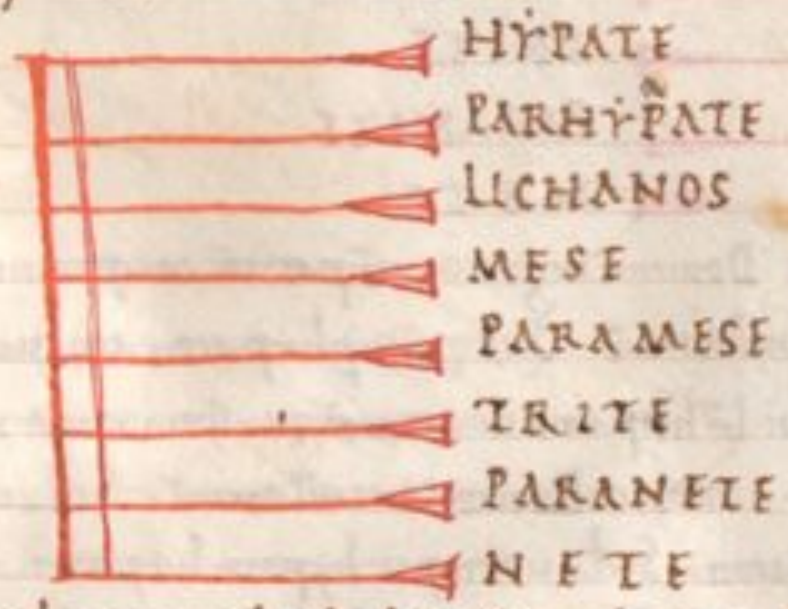 HẎPATE
PARHẎPATE
LICHANOS
MESE
PARAMESE
TRITE
PARANETE
NETE